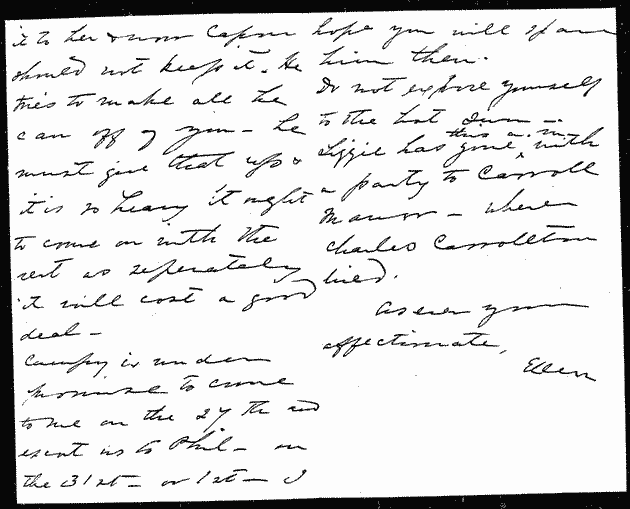 it to her & now Capron
should not keep it. He
tries to make all he
can off of you – he
must give that up &
it is so heavy it ought
to come on with the
rest as seperately
it will cost a good
deal –
Campy is under
promise to come
to me on the 27th and
escort us to Phil – on
the 31st – or 1st – I
hope you will spare
him then.
Do not expose yourself
to the hot sun –
this a.m.
Lizzie has gone with
a party to Carroll
Manor – where
Charles Carrollton
lived.
As ever your
affectionate,
Ellen